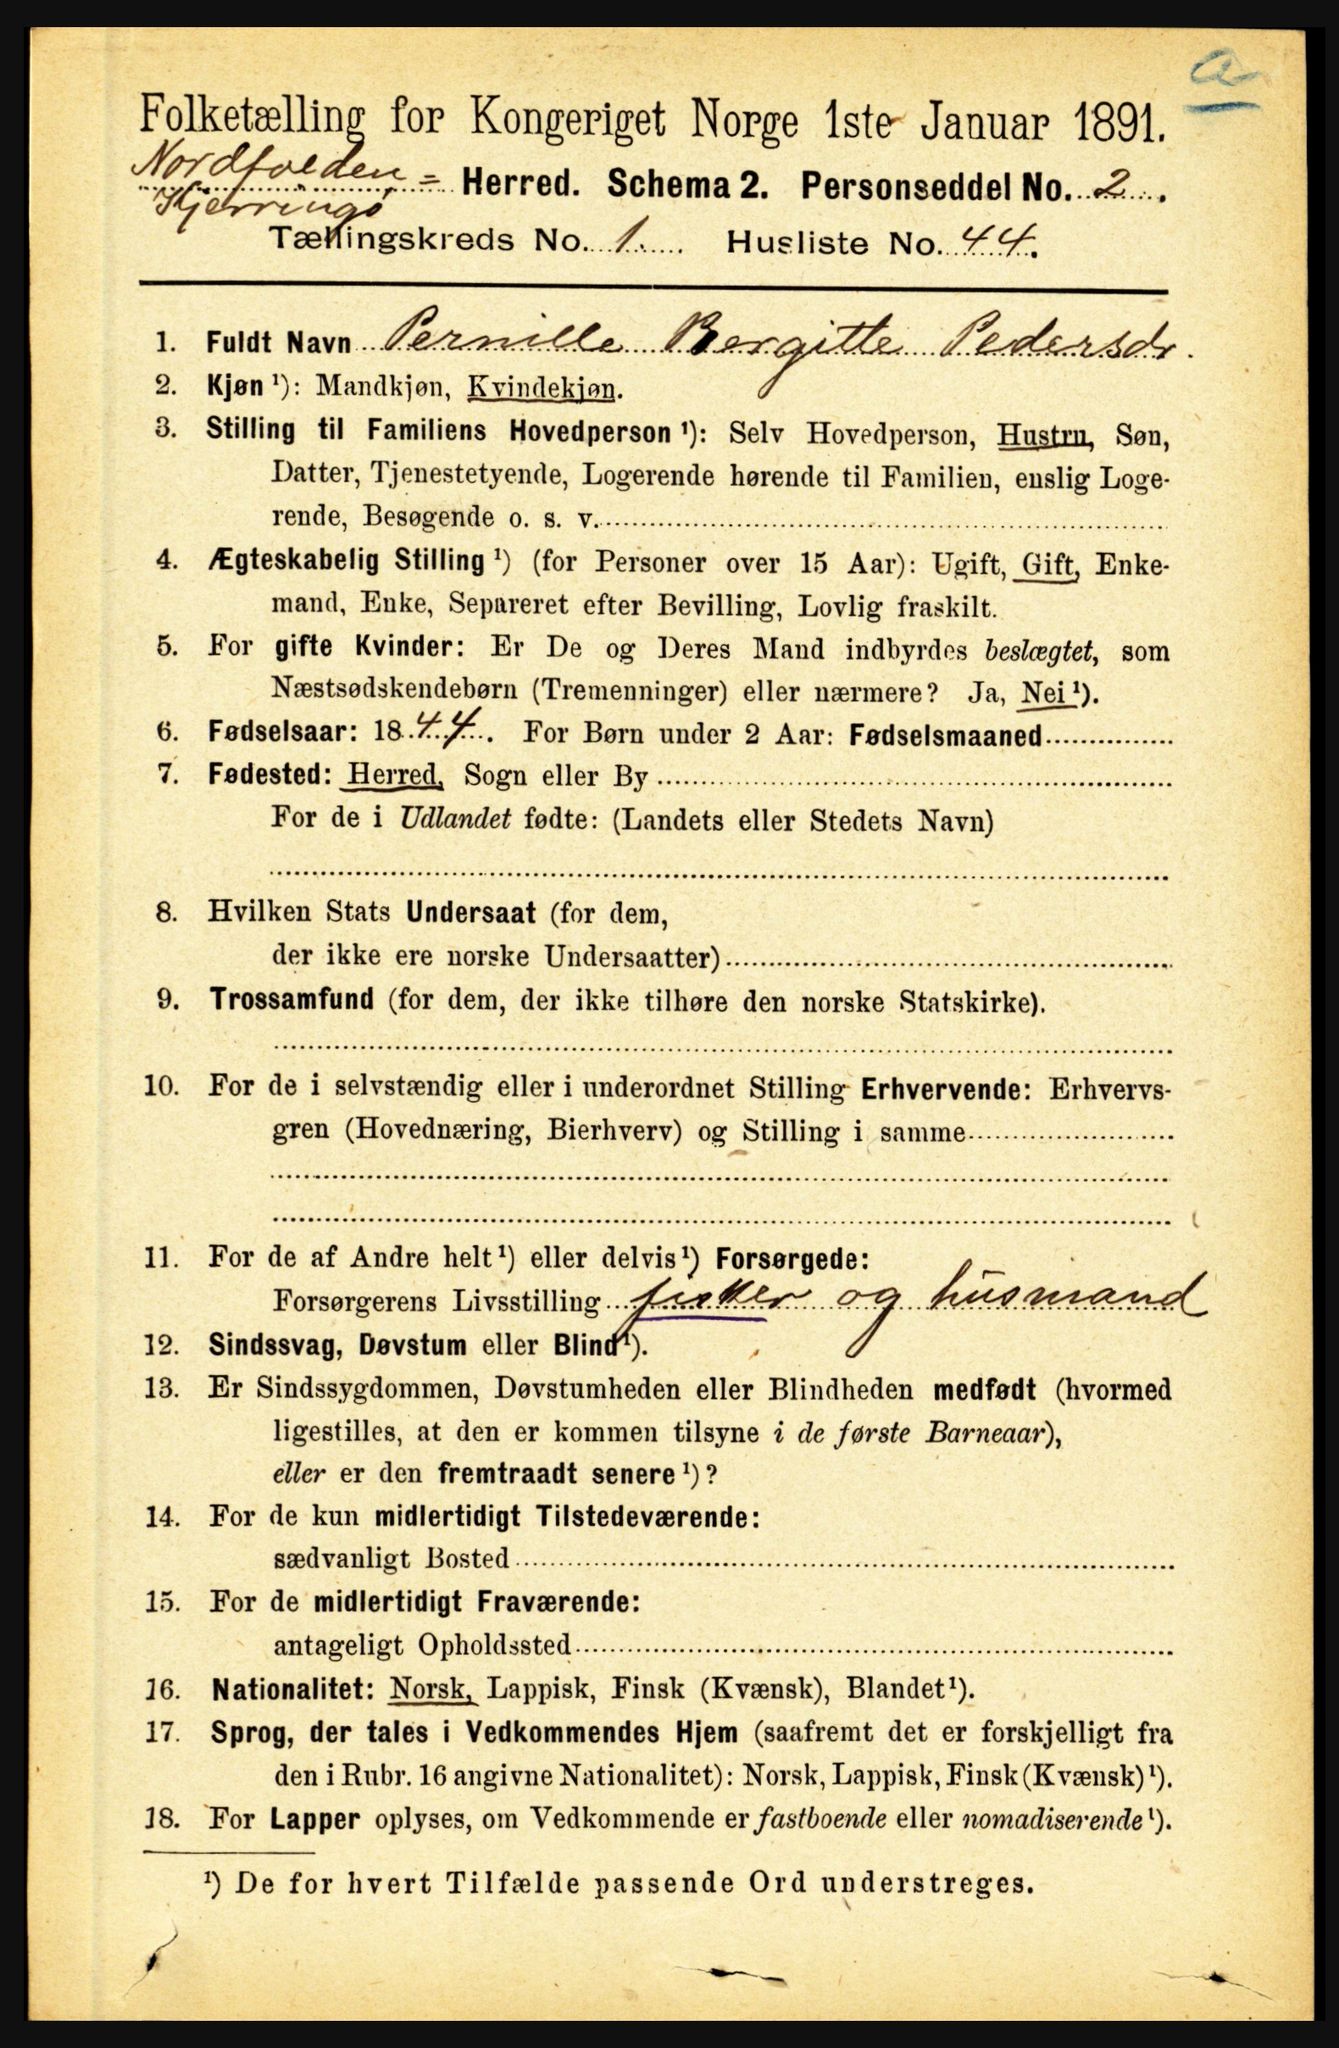 a
Folketælling for Kongeriget Norge 1ste Januar 1891.
Nordfolden=
Kjerringø
Herred. Schema 2. Personseddel No. 2.
Tællingskreds No. 1. Husliste No. 44.
1. Fuldt Navn Pernille Bergitte Pedersdr.
2. Kjøn ¹): Mandkjøn, Kvindekjøn.
3. Stilling til Familiens Hovedperson ¹): Selv Hovedperson, Hustru, Søn,
Datter, Tjenestetyende, Logerende hørende til Familien, enslig Loge-
rende, Besøgende o. s. v.
4. Ægteskabelig Stilling ¹) (for Personer over 15 Aar): Ugift, Gift, Enke-
mand, Enke, Separeret efter Bevilling, Lovlig fraskilt.
5. For gifte Kvinder: Er De og Deres Mand indbyrdes beslægtet, som
Næstsødskendebørn (Tremenninger) eller nærmere? Ja, Nei ¹).
6. Fødselsaar: 1844. For Børn under 2 Aar: Fødselsmaaned
7. Fødested: Herred, Sogn eller By
For de i Udlandet fødte: (Landets eller Stedets Navn)
8. Hvilken Stats Undersaat (for dem,
der ikke ere norske Undersaatter)
9. Trossamfund (for dem, der ikke tilhøre den norske Statskirke).
10. For de i selvstændig eller i underordnet Stilling Erhvervende: Erhvervs-
gren (Hovednæring, Bierhverv) og Stilling i samme
11. For de af Andre helt ¹) eller delvis ¹) Forsørgede:
Forsørgerens Livsstilling fisker og husmand
12. Sindssvag, Døvstum eller Blind ¹).
13. Er Sindssygdommen, Døvstumheden eller Blindheden medfødt (hvormed
ligestilles, at den er kommen tilsyne i de første Barneaar),
eller er den fremtraadt senere ¹)?
14. For de kun midlertidigt Tilstedeværende:
sædvanligt Bosted
15. For de midlertidigt Fraværende:
antageligt Opholdssted
16. Nationalitet: Norsk, Lappisk, Finsk (Kvænsk), Blandet ¹).
17. Sprog, der tales i Vedkommendes Hjem (saafremt det er forskjelligt fra
den i Rubr. 16 angivne Nationalitet): Norsk, Lappisk, Finsk (Kvænsk) ¹).
18. For Lapper oplyses, om Vedkommende er fastboende eller nomadiserende ¹).
¹) De for hvert Tilfælde passende Ord understreges.